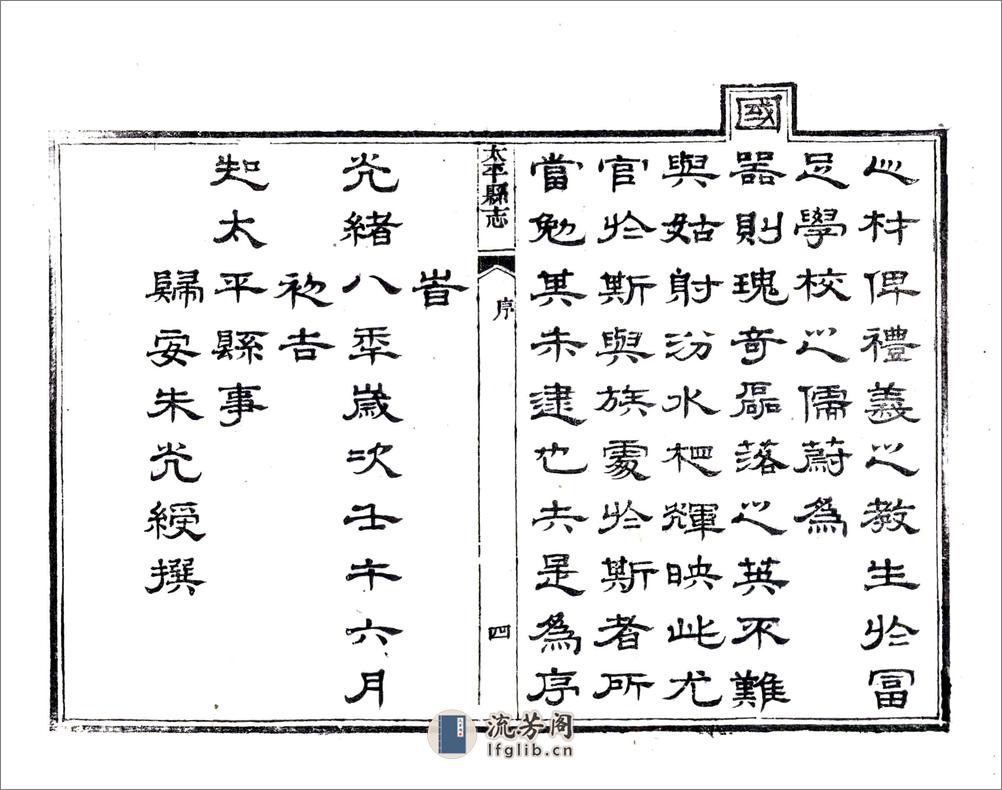 之材俾禮義之教生於富
足學校之儒蔚為
國
器則瑰奇磊落之英不難
與姑射汾水相輝映此尤
官於斯與族處於斯者所
當勉其未逮也夫是為序
太平縣志
序
四
旹
光緒八年歲次壬午六月
初吉
知太平縣事
歸安朱光綬撰
流芳阁
lfglib.cn